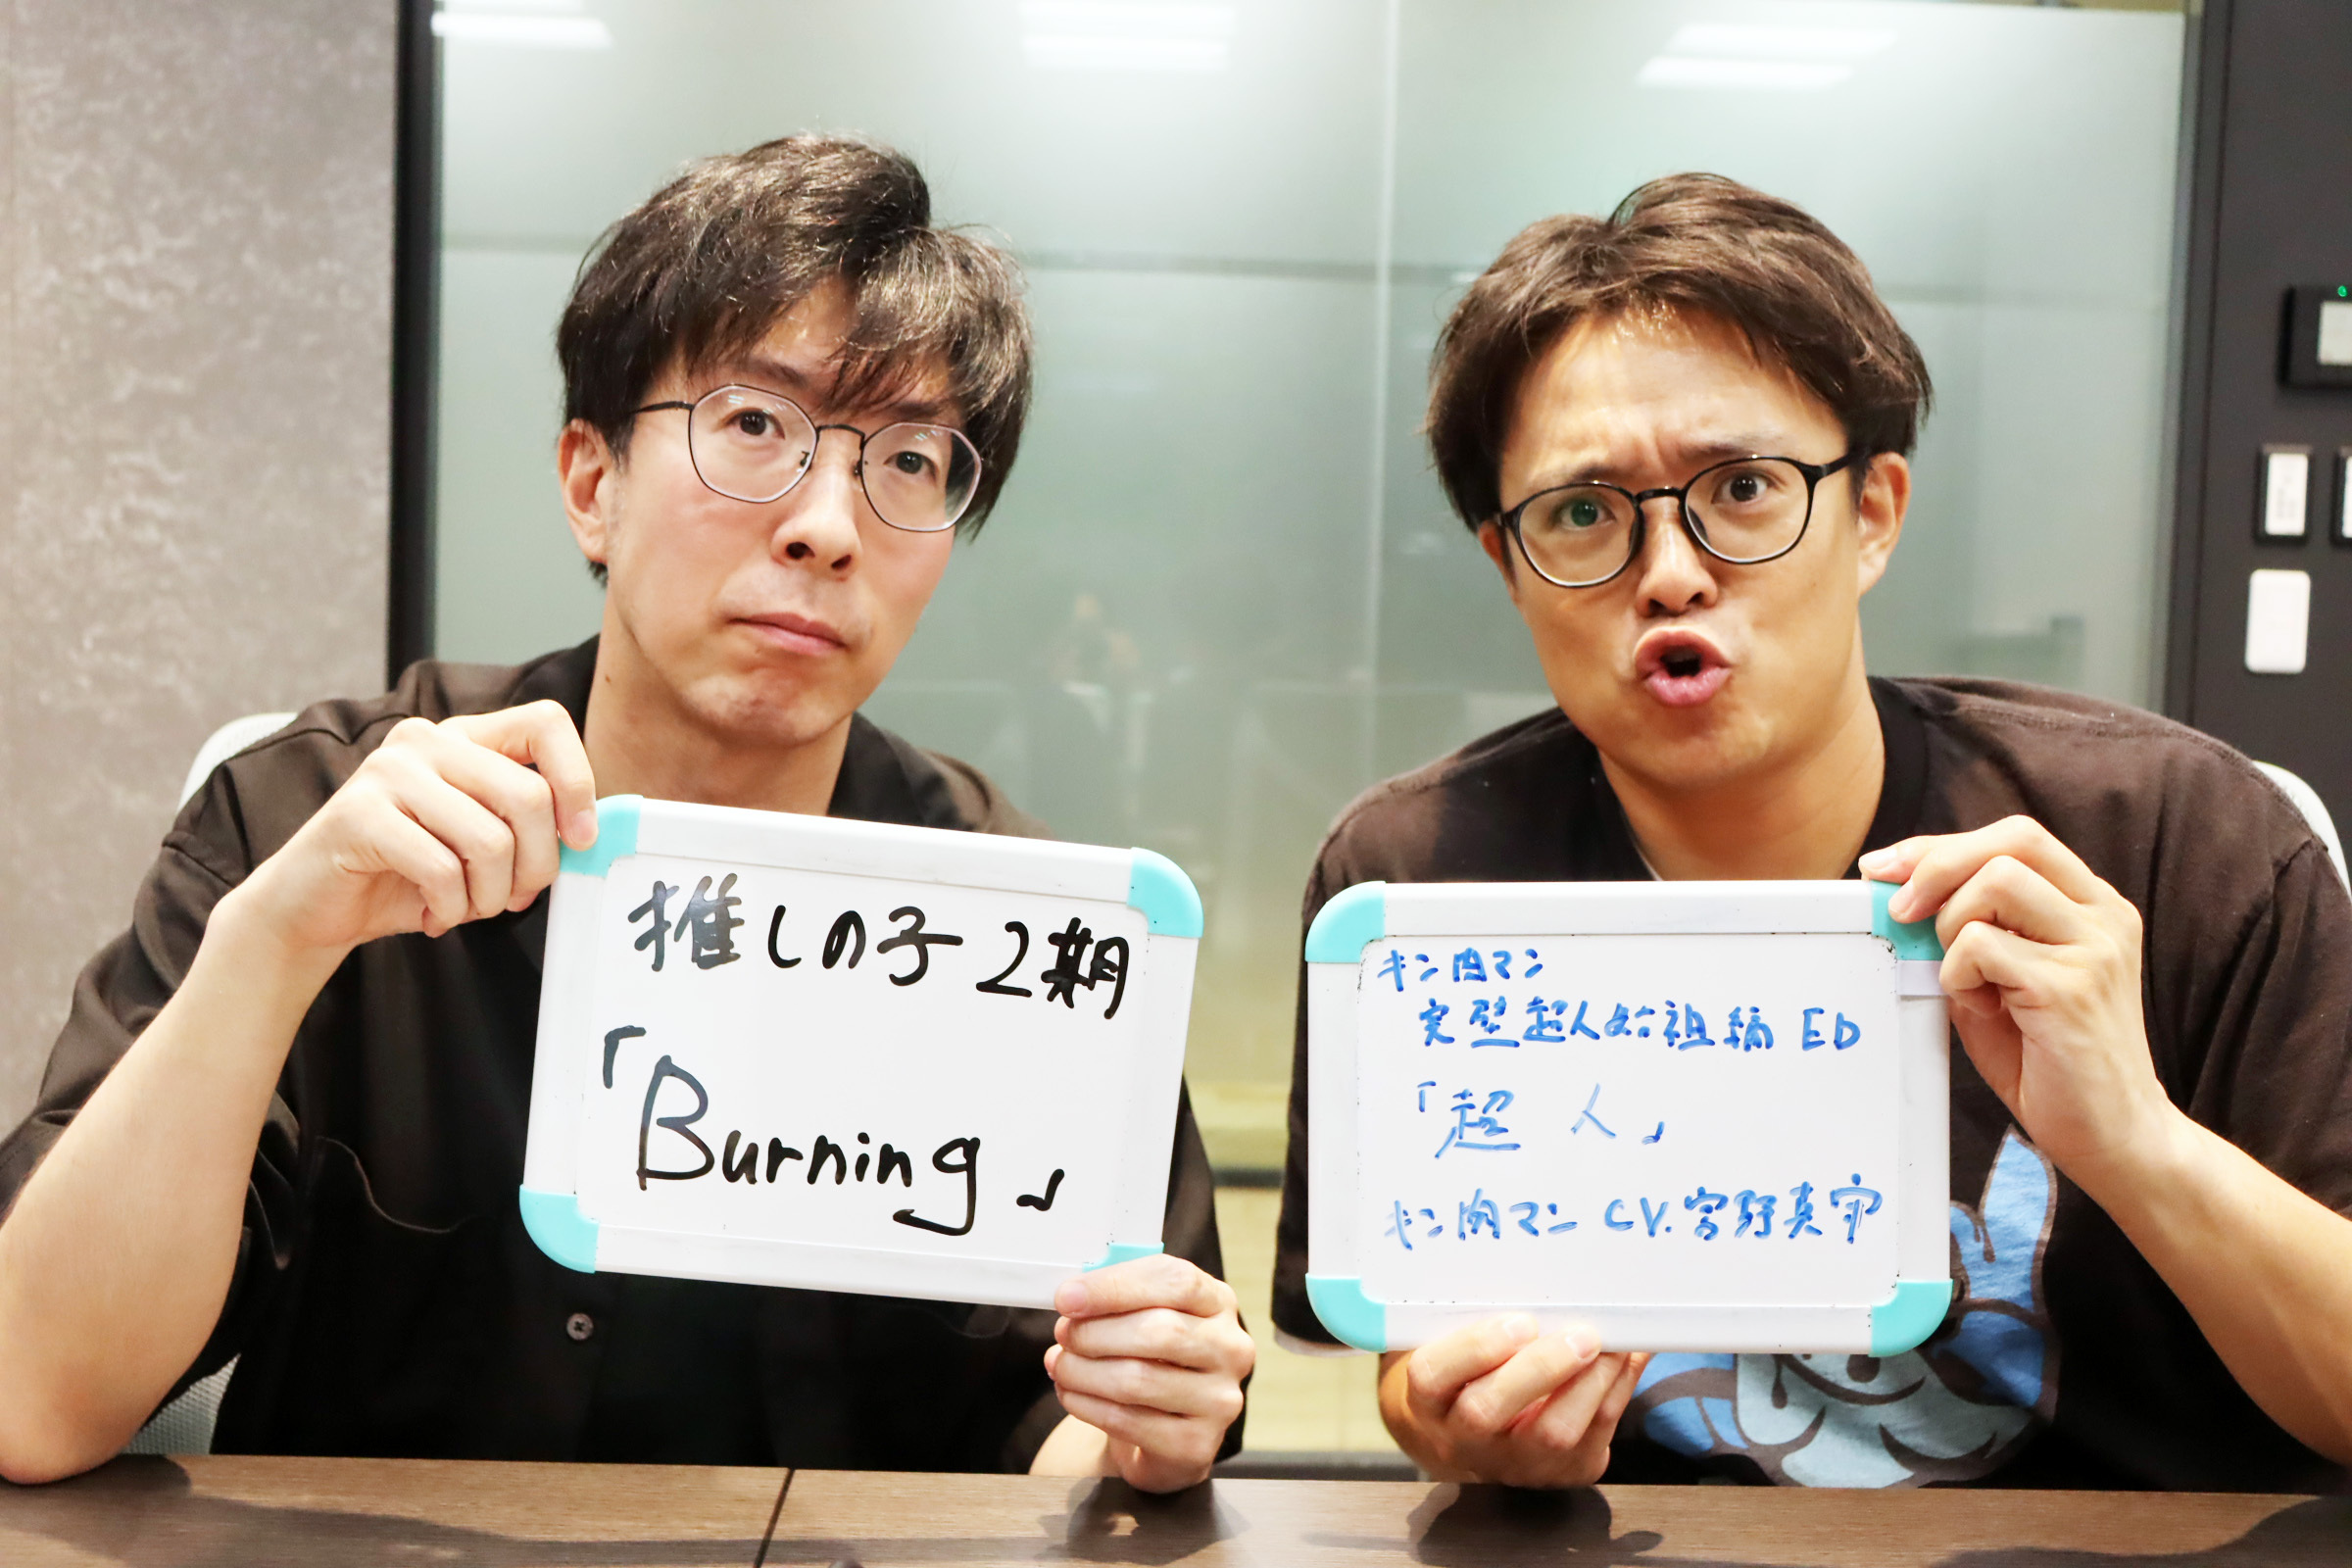 推しの子 2期
「Burning」
キン肉マン
完璧超人始祖編 ED
「超人」
キン肉マン CV.宮野真守